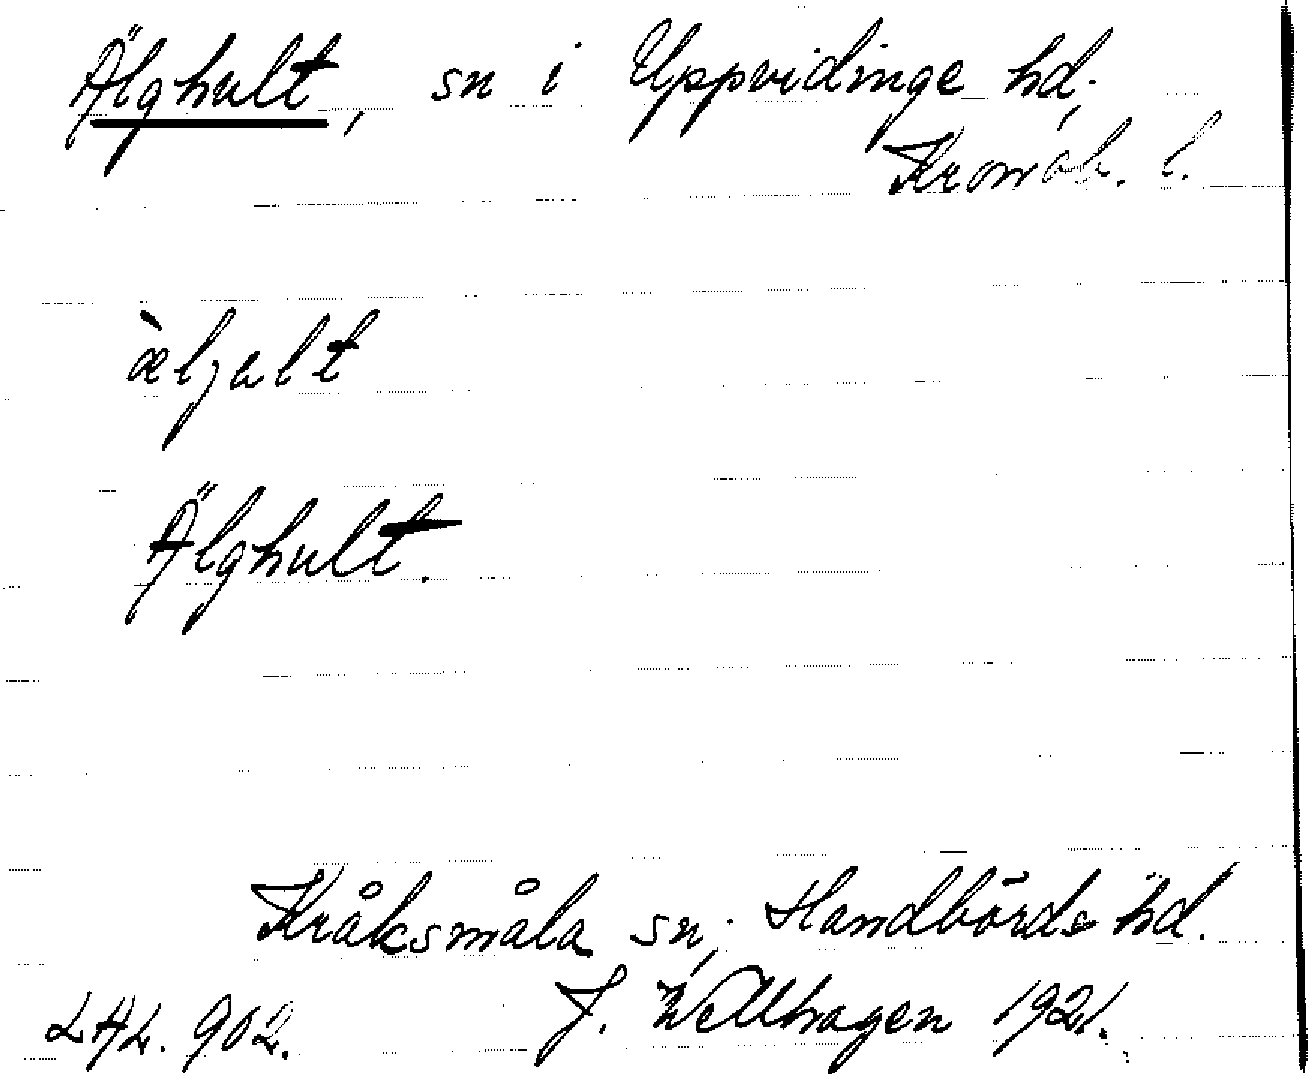 Älghult, sn i Uppvidinge hd.
Kronob. l.
æ̀ljult
Älghult.
Kråksmåla sn, Handbörds hd.
LAL. 902. J. Wellhagen 1921.